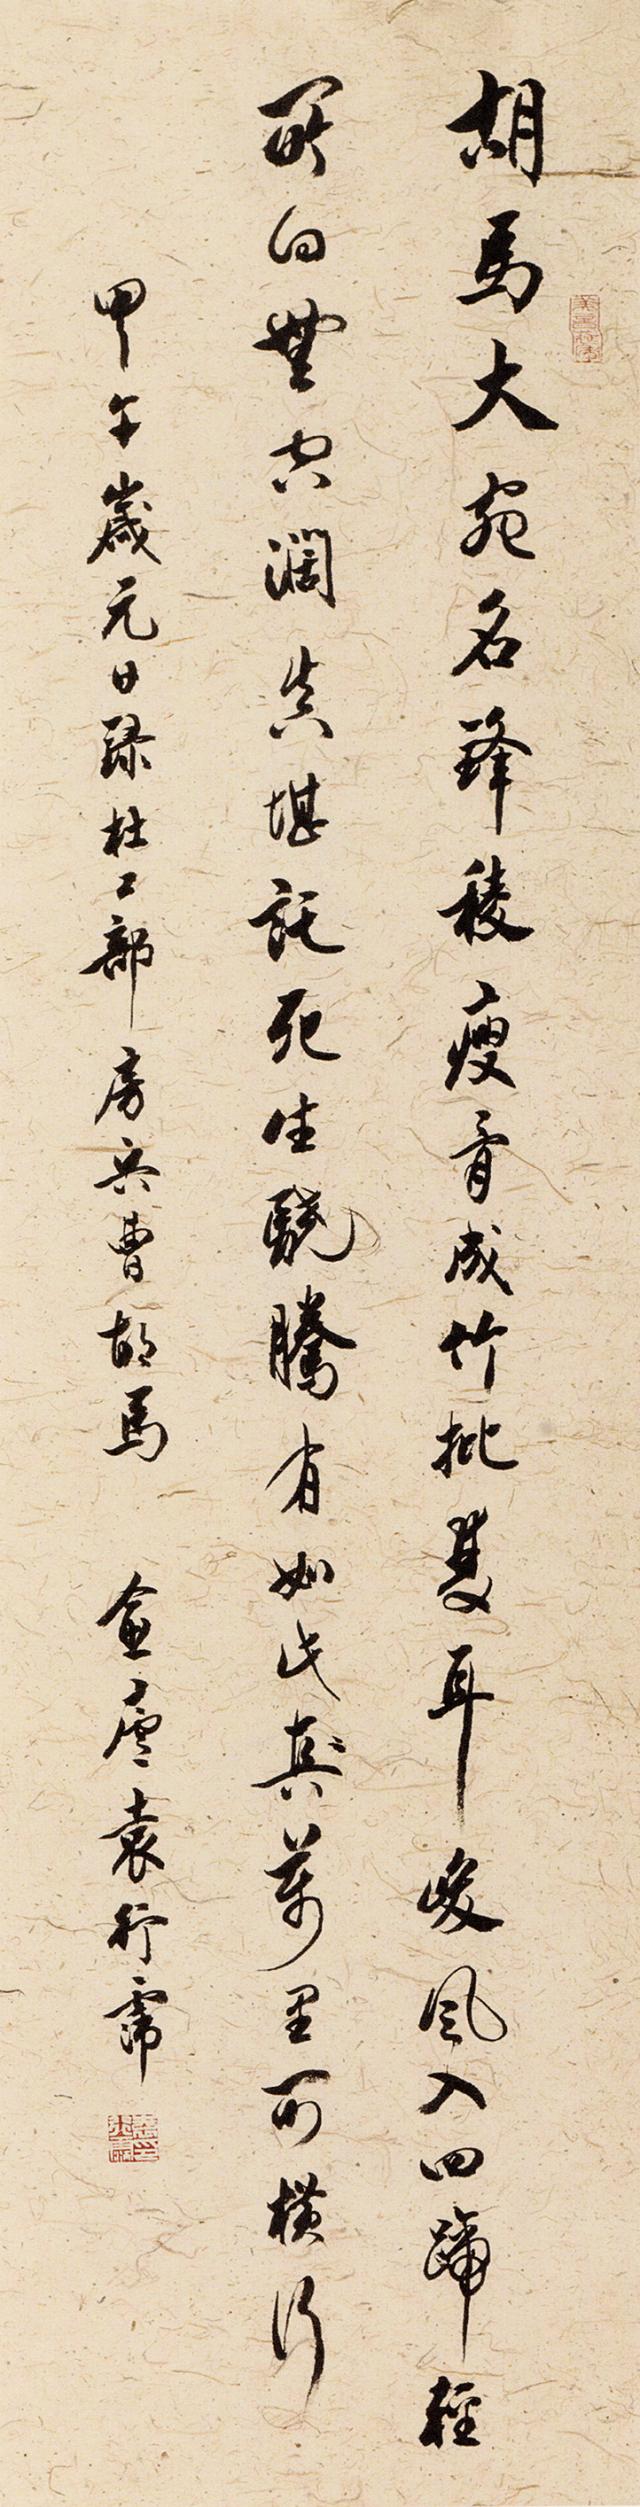 胡馬大宛名鋒稜瘦骨成竹批雙耳峻風入四蹄輕
所向無空濶真堪託死生驍騰有如此萬里可橫行
甲午歲元日錄杜工部房兵曹胡馬 愈廬袁行霈